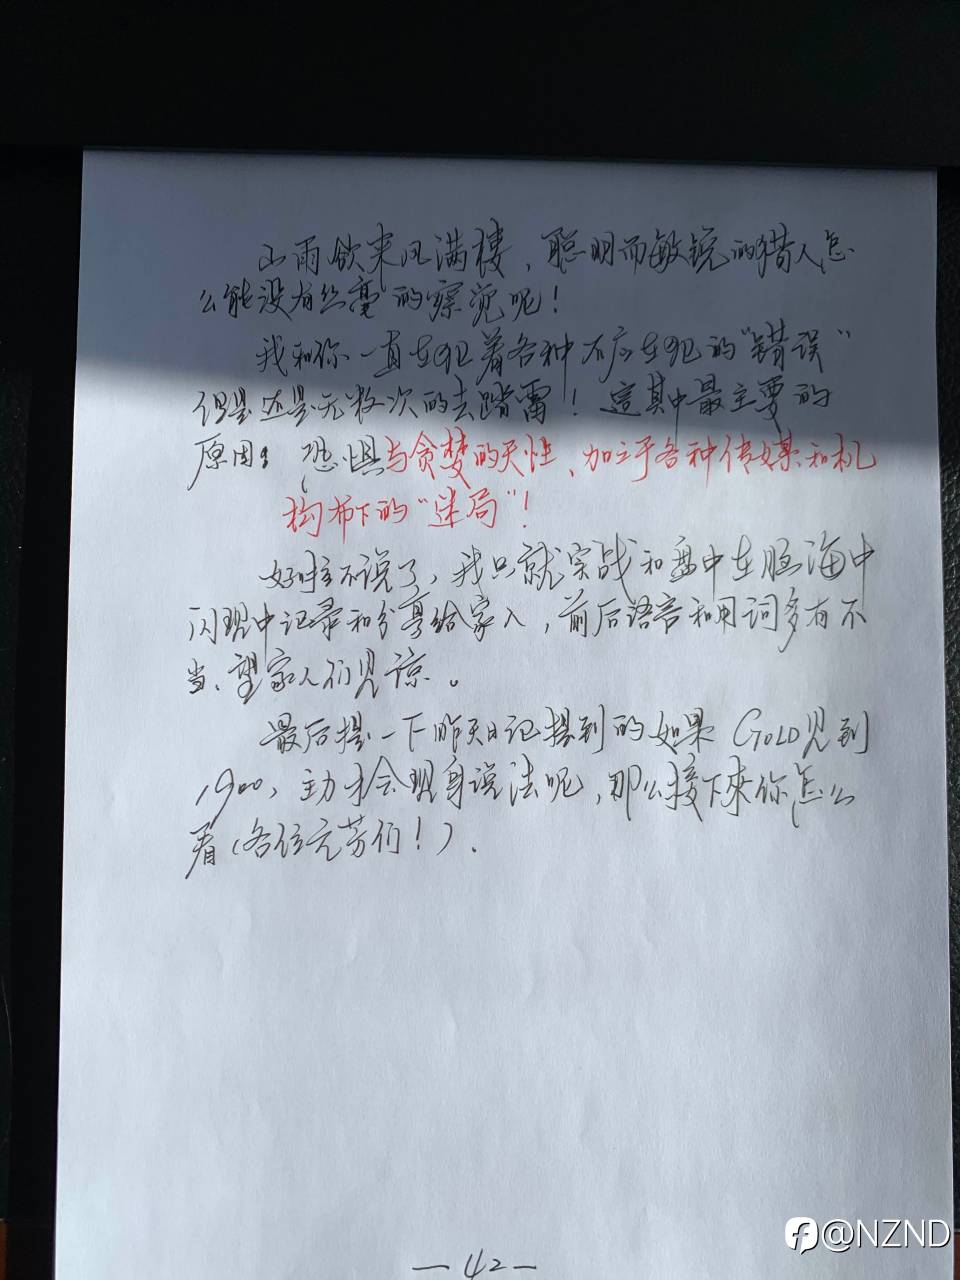 山雨欲来风满楼，聪明而敏锐的猎人怎
么能没有丝毫的察觉呢！
我和你一直在犯着各种不应在犯的“错误”
但是还是无数次的去踏雷！这其中最主要的
原因：恐惧与贪婪的天性、加之于各种传媒和机
构布下的“迷局”！
好啦不说了，我只就实战和盘中在脑海中
闪现中记录和分享给家人，前后语言和用词多有不
当、望家人们见谅。
最后提一下昨天日记提到的如果GOLD见到
1900，主力才会现身说法呢，那么接下来你怎么
看（各位元芳们！）.
—42—
@NZND